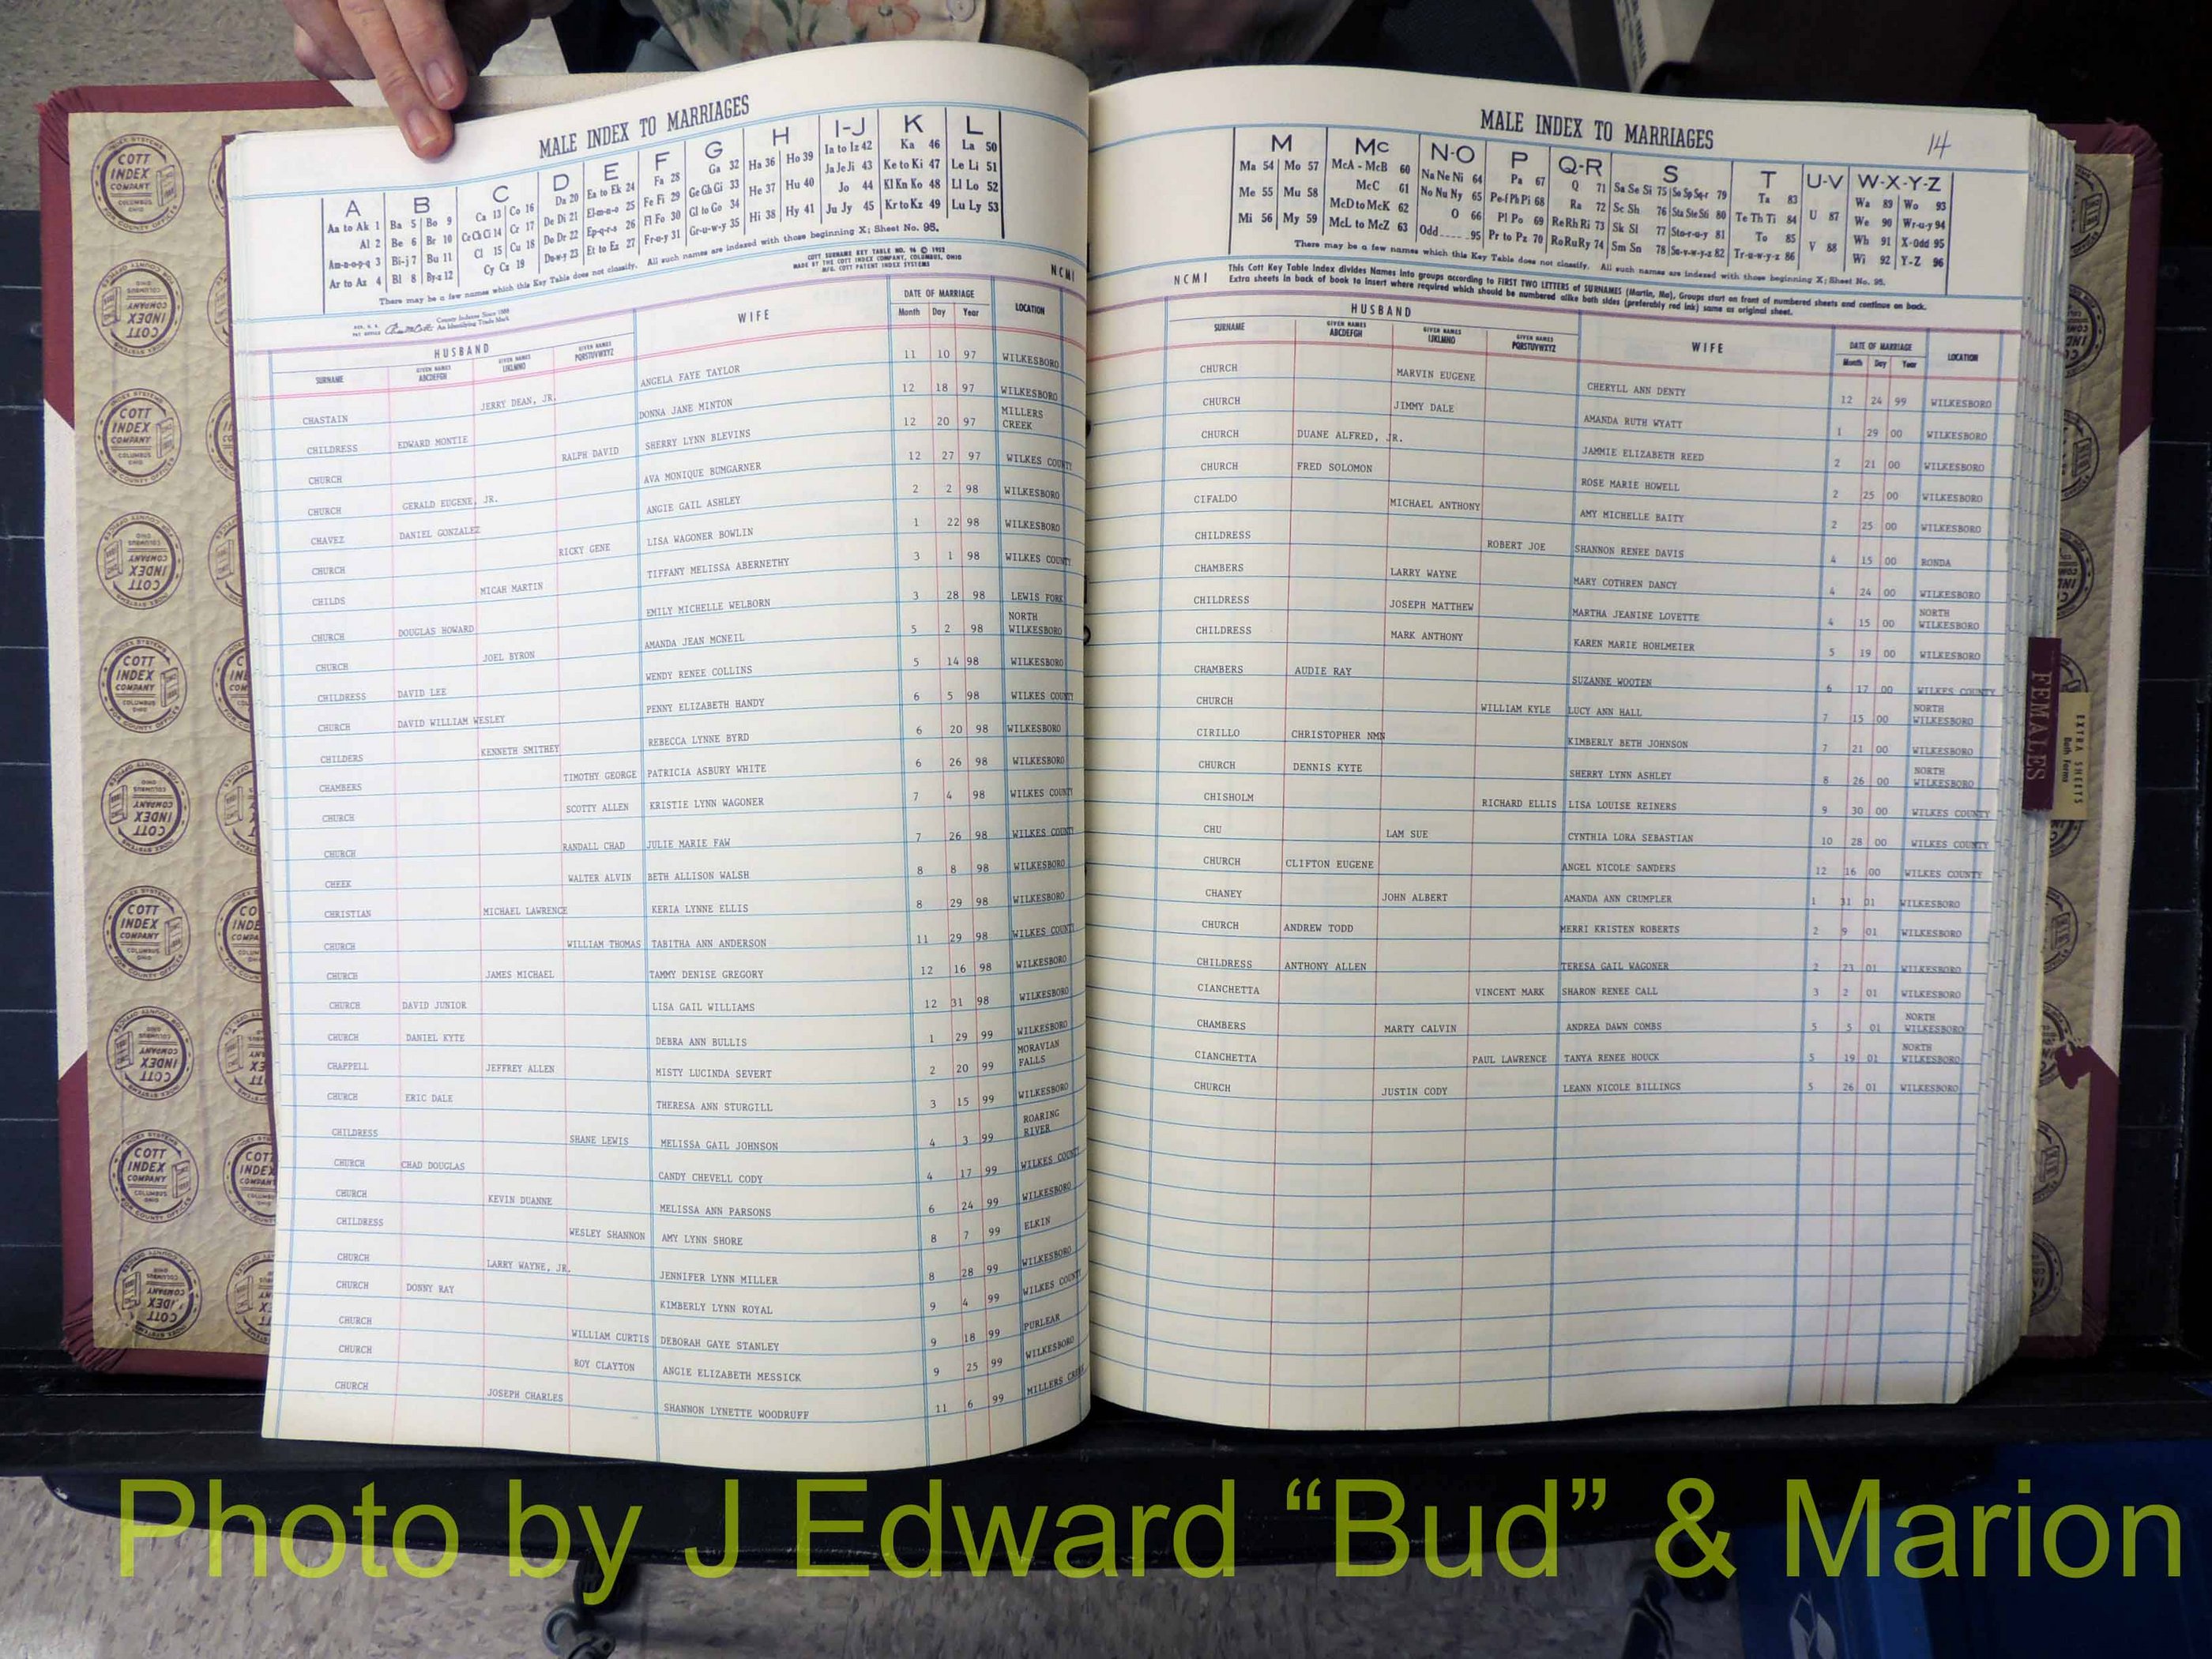 MALE INDEX TO MARRIAGES
A B C D E F G H I-J K L
Aa to Ak 1 Ba 5 Bo 9 Ca 13 Co 16 Da 20 Ea to Ek 24 Fa 28 Ga 32 Ha 36 Ho 39 Ia to Iz 42 Ka 46 La 50
Al 2 Be 6 Br 10 Ce Ch Ci 14 Cr 17 De Di 21 El-m-n-o 25 Fe Fi 29 Ge Gh Gi 33 He 37 Hu 40 Ja Je Ji 43 Ke to Ki 47 Le Li 51
Am-n-o-p-q 3 Bi-j 7 Bu 11 Cl 15 Cu 18 Do Dr 22 Ep-q-r-s 26 Fl Fo 30 Gl to Go 34 Hi 38 Hy 41 Jo 44 Kl Kn Ko 48 Ll Lo 52
Ar to Az 4 Bl 8 By-z 12 Cy Cz 19 Du-w-y 23 Et to Ez 27 Fr-u-y 31 Gr-u-w-y 35 Ju Jy 45 Kr to Kz 49 Lu Ly 53
There may be a few names which this Key Table does not classify. All such names are indexed with those beginning X; Sheet No. 95.
COTT SURNAME KEY TABLE NO. 96 © 1952
MADE BY THE COTT INDEX COMPANY, COLUMBUS, OHIO
MFG. COTT PATENT INDEX SYSTEMS
NCMI
County Indexes Since 1888
An Identifying Trade Mark
HUSBAND WIFE DATE OF MARRIAGE LOCATION
SURNAME GIVEN NAMES ABCDEFGH GIVEN NAMES IJKLMNO GIVEN NAMES PQRSTUVWXYZ Month Day Year
CHASTAIN JERRY DEAN, JR. ANGELA FAYE TAYLOR 11 10 97 WILKESBORO
CHILDRESS EDWARD MONTIE DONNA JANE MINTON 12 18 97 WILKESBORO
CHURCH RALPH DAVID SHERRY LYNN BLEVINS 12 20 97 MILLERS CREEK
CHURCH GERALD EUGENE, JR. AVA MONIQUE BUMGARNER 12 27 97 WILKES COUNTY
CHAVEZ DANIEL GONZALEZ ANGIE GAIL ASHLEY 2 2 98 WILKESBORO
CHURCH RICKY GENE LISA WAGONER BOWLIN 1 22 98 WILKESBORO
CHILDS MICAH MARTIN TIFFANY MELISSA ABERNETHY 3 1 98 WILKES COUNTY
CHURCH DOUGLAS HOWARD EMILY MICHELLE WELBORN 3 28 98 LEWIS FORK
CHURCH JOEL BYRON AMANDA JEAN MCNEIL 5 2 98 NORTH WILKESBORO
CHILDRESS DAVID LEE WENDY RENEE COLLINS 5 14 98 WILKESBORO
CHURCH DAVID WILLIAM WESLEY PENNY ELIZABETH HANDY 6 5 98 WILKES COUNTY
CHILDERS KENNETH SMITHEY REBECCA LYNNE BYRD 6 20 98 WILKESBORO
CHAMBERS TIMOTHY GEORGE PATRICIA ASBURY WHITE 6 26 98 WILKESBORO
CHURCH SCOTTY ALLEN KRISTIE LYNN WAGONER 7 4 98 WILKES COUNTY
CHURCH RANDALL CHAD JULIE MARIE FAW 7 26 98 WILKES COUNTY
CHEEK WALTER ALVIN BETH ALLISON WALSH 8 8 98 WILKESBORO
CHRISTIAN MICHAEL LAWRENCE KERIA LYNNE ELLIS 8 29 98 WILKESBORO
CHURCH WILLIAM THOMAS TABITHA ANN ANDERSON 11 29 98 WILKES COUNTY
CHURCH JAMES MICHAEL TAMMY DENISE GREGORY 12 16 98 WILKESBORO
CHURCH DAVID JUNIOR LISA GAIL WILLIAMS 12 31 98 WILKESBORO
CHURCH DANIEL KYTE DEBRA ANN BULLIS 1 29 99 WILKESBORO
CHAPPELL JEFFREY ALLEN MISTY LUCINDA SEVERT 2 20 99 MORAVIAN FALLS
CHURCH ERIC DALE THERESA ANN STURGILL 3 15 99 WILKESBORO
CHILDRESS SHANE LEWIS MELISSA GAIL JOHNSON 4 3 99 ROARING RIVER
CHURCH CHAD DOUGLAS CANDY CHEVELL CODY 4 17 99 WILKES COUNTY
CHURCH KEVIN DUANNE MELISSA ANN PARSONS 6 24 99 WILKESBORO
CHILDRESS WESLEY SHANNON AMY LYNN SHORE 8 7 99 ELKIN
CHURCH LARRY WAYNE, JR. JENNIFER LYNN MILLER 8 28 99 WILKESBORO
CHURCH DONNY RAY KIMBERLY LYNN ROYAL 9 4 99 WILKES COUNTY
CHURCH WILLIAM CURTIS DEBORAH GAYE STANLEY 9 18 99 PURLEAR
CHURCH ROY CLAYTON ANGIE ELIZABETH MESSICK 9 25 99 WILKESBORO
CHURCH JOSEPH CHARLES SHANNON LYNETTE WOODRUFF 11 6 99 MILLERS CREEK
MALE INDEX TO MARRIAGES 14
M Mc N-O P Q-R S T U-V W-X-Y-Z
Ma 54 Mo 57 McA - McB 60 Na Ne Ni 64 Pa 67 Q 71 Sa Se Si 75 So Sp Sq-r 79 Ta 83 U 87 Wa 89 Wo 93
Me 55 Mu 58 McC 61 No Nu Ny 65 Pe-f Ph Pi 68 Ra 72 Sc Sh 76 Sta Ste Sti 80 Te Th Ti 84 We 90 Wr-u-y 94
Mi 56 My 59 McD to McK 62 O 66 Pl Po 69 Re Rh Ri 73 Sk Sl 77 Sto-r-u-y 81 To 85 V 88 Wh 91 X-Odd 95
McL to McZ 63 Odd 95 Pr to Pz 70 Ro Ru Ry 74 Sm Sn 78 Su-v-w-y-z 82 Tr-u-w-y-z 86 Wi 92 Y-Z 96
There may be a few names which this Key Table does not classify. All such names are indexed with those beginning X; Sheet No. 95.
NCMI This Cott Key Table Index divides Names into groups according to FIRST TWO LETTERS of SURNAMES (Martin, Ma), Groups start on front of numbered sheets and continue on back.
Extra sheets in back of book to insert where required which should be numbered alike both sides (preferably red ink) same as original sheet.
HUSBAND WIFE DATE OF MARRIAGE LOCATION
SURNAME GIVEN NAMES ABCDEFGH GIVEN NAMES IJKLMNO GIVEN NAMES PQRSTUVWXYZ Month Day Year
CHURCH MARVIN EUGENE CHERYLL ANN DENTY 12 24 99 WILKESBORO
CHURCH JIMMY DALE AMANDA RUTH WYATT 1 29 00 WILKESBORO
CHURCH DUANE ALFRED, JR. JAMMIE ELIZABETH REED 2 21 00 WILKESBORO
CHURCH FRED SOLOMON ROSE MARIE HOWELL 2 25 00 WILKESBORO
CIFALDO MICHAEL ANTHONY AMY MICHELLE BAITY 2 25 00 WILKESBORO
CHILDRESS ROBERT JOE SHANNON RENEE DAVIS 4 15 00 RONDA
CHAMBERS LARRY WAYNE MARY COTHREN DANCY 4 24 00 WILKESBORO
CHILDRESS JOSEPH MATTHEW MARTHA JEANINE LOVETTE 4 15 00 NORTH WILKESBORO
CHILDRESS MARK ANTHONY KAREN MARIE HOHLMEIER 5 19 00 WILKESBORO
CHAMBERS AUDIE RAY SUZANNE WOOTEN 6 17 00 WILKES COUNTY
CHURCH WILLIAM KYLE LUCY ANN HALL 7 15 00 NORTH WILKESBORO
CIRILLO CHRISTOPHER NMN KIMBERLY BETH JOHNSON 7 21 00 WILKESBORO
CHURCH DENNIS KYTE SHERRY LYNN ASHLEY 8 26 00 NORTH WILKESBORO
CHISHOLM RICHARD ELLIS LISA LOUISE REINERS 9 30 00 WILKES COUNTY
CHU LAM SUE CYNTHIA LORA SEBASTIAN 10 28 00 WILKES COUNTY
CHURCH CLIFTON EUGENE ANGEL NICOLE SANDERS 12 16 00 WILKES COUNTY
CHANEY JOHN ALBERT AMANDA ANN CRUMPLER 1 31 01 WILKESBORO
CHURCH ANDREW TODD MERRI KRISTEN ROBERTS 2 9 01 WILKESBORO
CHILDRESS ANTHONY ALLEN TERESA GAIL WAGONER 2 23 01 WILKESBORO
CIANCHETTA VINCENT MARK SHARON RENEE CALL 3 2 01 WILKESBORO
CHAMBERS MARTY CALVIN ANDREA DAWN COMBS 5 5 01 NORTH WILKESBORO
CIANCHETTA PAUL LAWRENCE TANYA RENEE HOUCK 5 19 01 NORTH WILKESBORO
CHURCH JUSTIN CODY LEANN NICOLE BILLINGS 5 26 01 WILKESBORO
FEMALES
EXTRA SHEETS
Both Forms
COTT INDEX COMPANY COLUMBUS OHIO
Photo by J Edward “Bud” & Marion